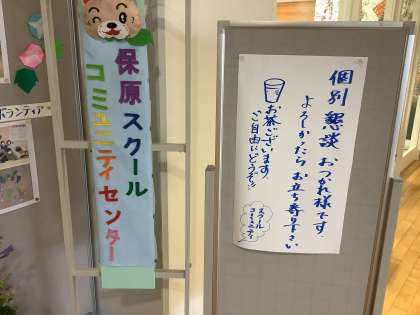 保原スクール
コミュニティセンター
ボランティア
個別懇談 おつかれ様です
よろしかったら お立ち寄り下さい
お茶ございます
ご自由にどうぞ!!
スクール
コミュニティ